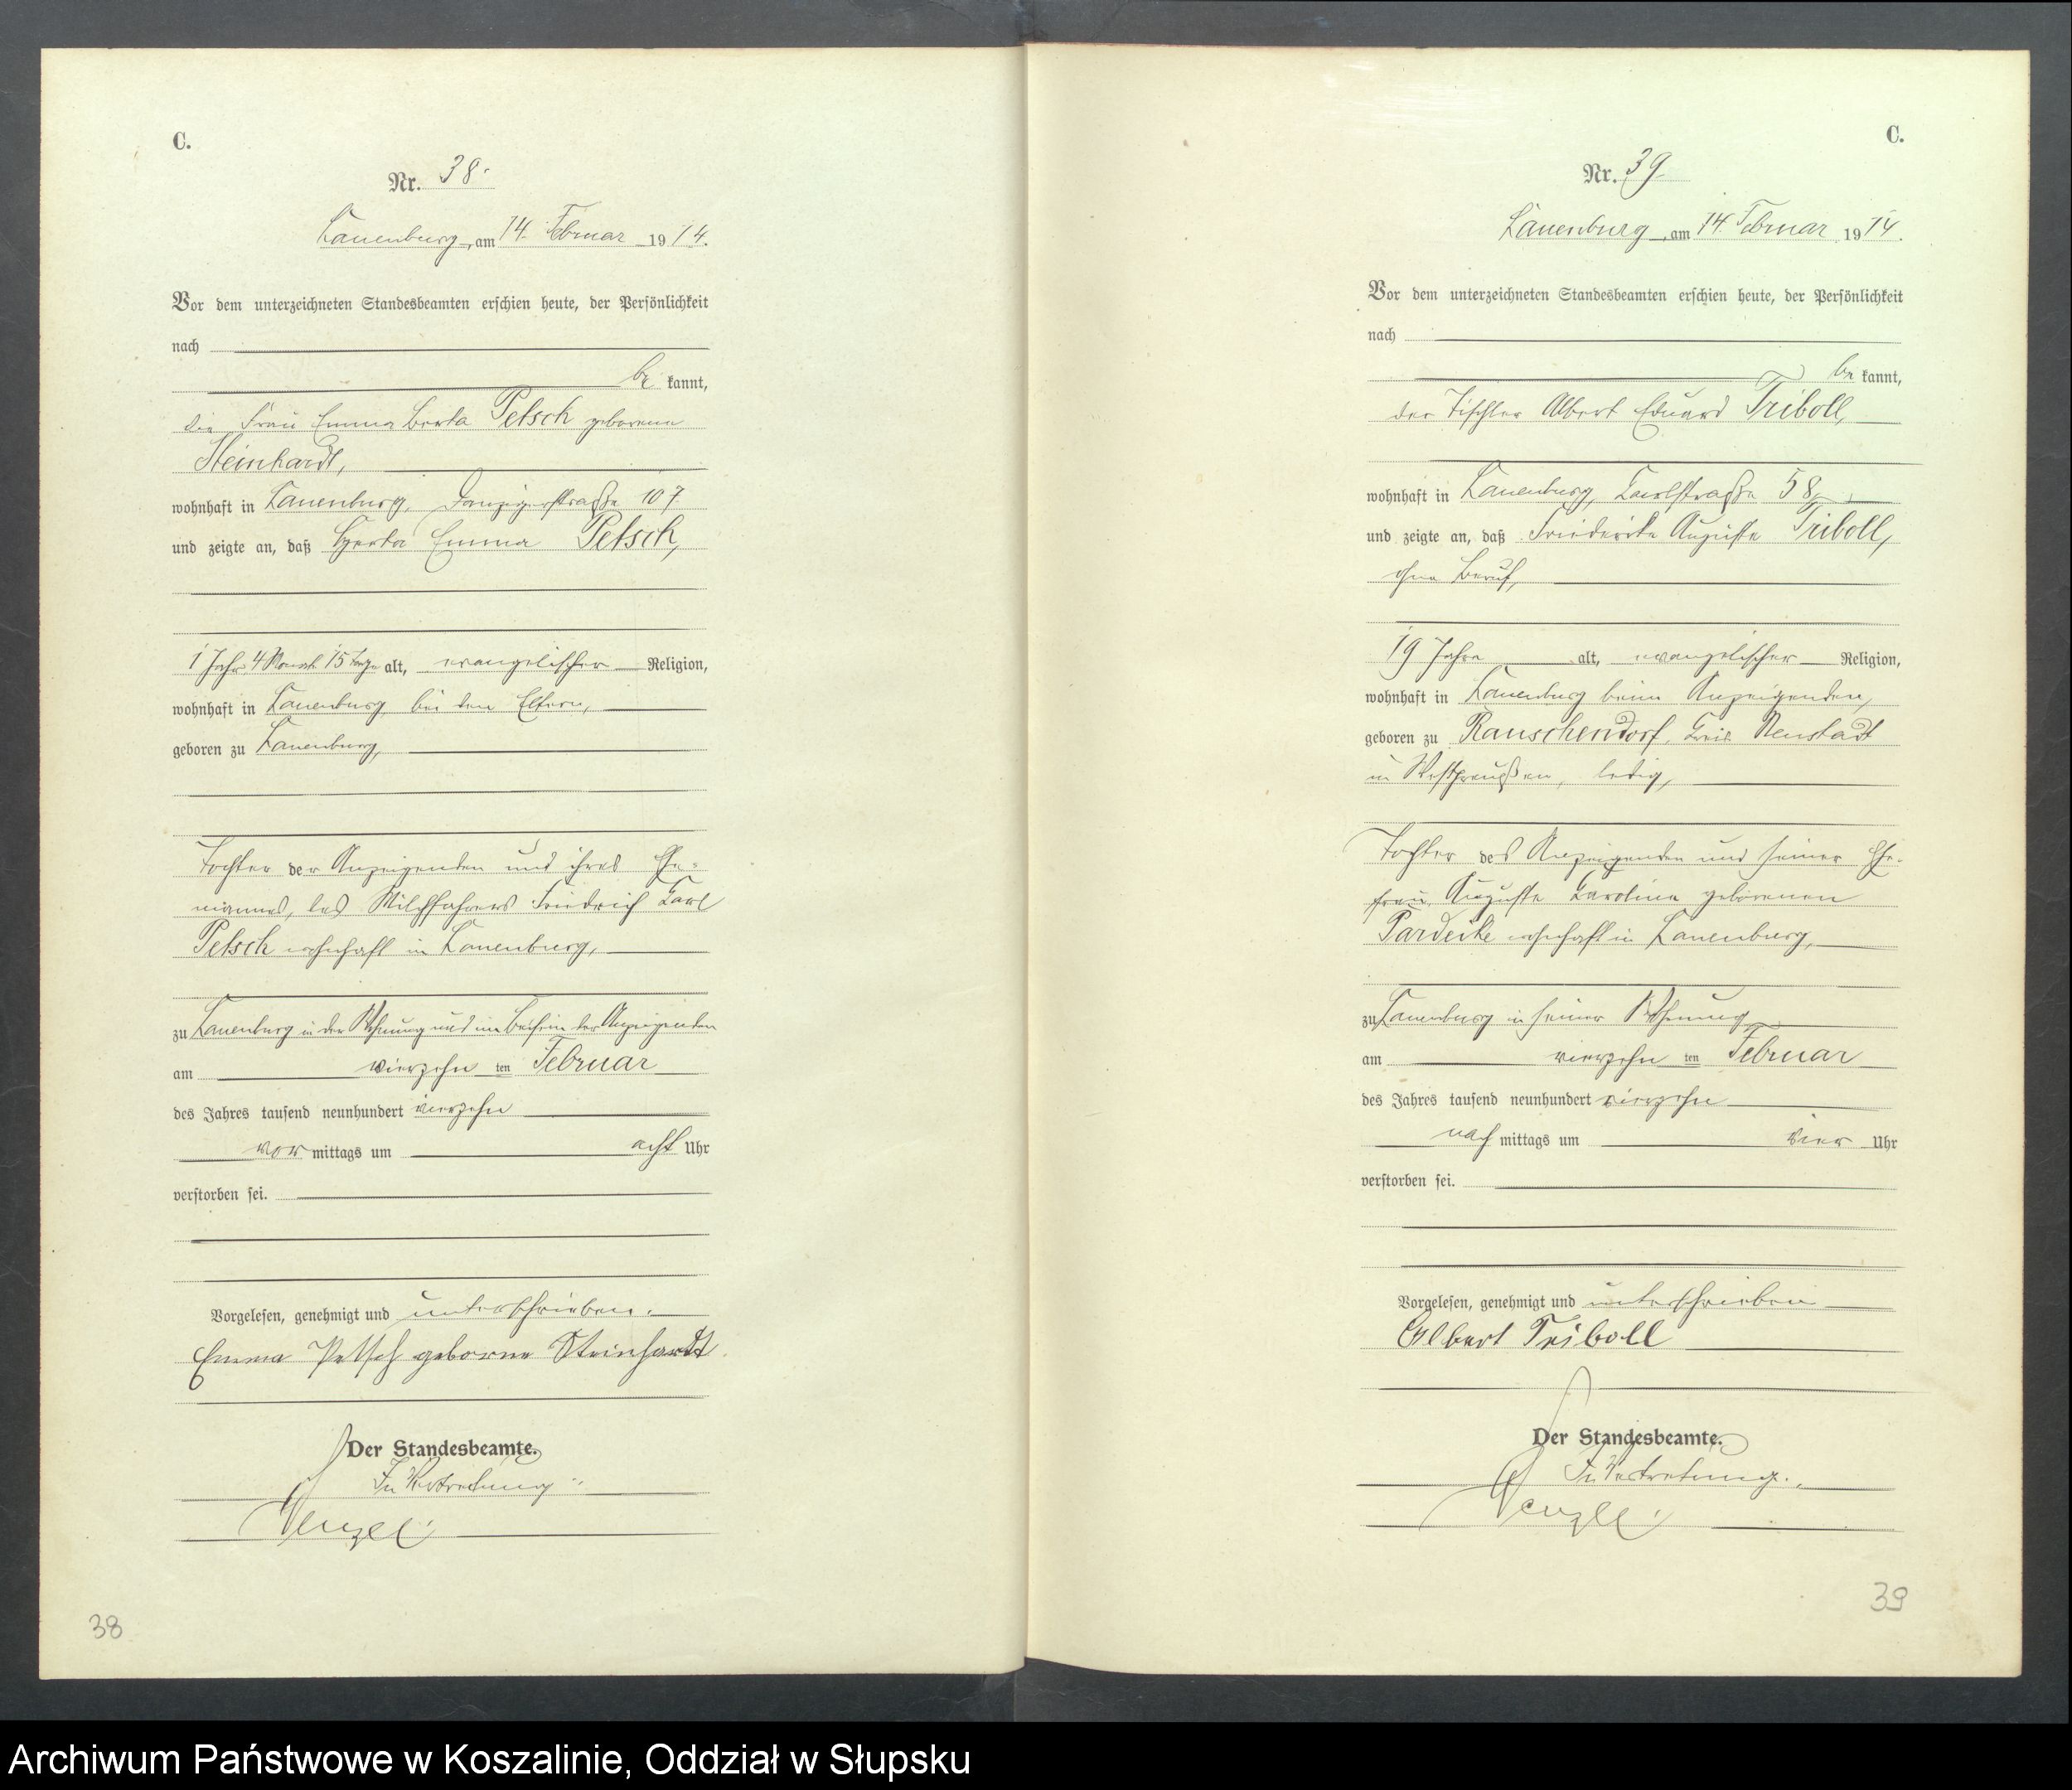 C.
Nr. 38.
Lauenburg, am 14. Februar 1914.
Vor dem unterzeichneten Standesbeamten erschien heute, der Persönlichkeit
nach
be kannt,
die Frau Emma Berta Petsch geborene
Steinhardt,
wohnhaft in Lauenburg, Danzigerstraße 107
und zeigte an, daß Herta Emma Petsch,
1 Jahr 4 Monate 15 Tage alt, evangelischer Religion,
wohnhaft in Lauenburg bei den Eltern,
geboren zu Lauenburg,
Tochter der Anzeigenden und ihres Ehe-
mannes, des Milchfahrers Friedrich Carl
Petsch wohnhaft in Lauenburg,
zu Lauenburg in der Wohnung und im Beisein der Anzeigenden
am vierzehn ten Februar
des Jahres tausend neunhundert vierzehn
vor mittags um acht Uhr
verstorben sei.
Vorgelesen, genehmigt und unterschrieben.
Emma Petsch geborne Steinhardt.
Der Standesbeamte.
In Vertretung:
Wenzel
38
C.
Nr. 39
Lauenburg, am 14. Februar 1914.
Vor dem unterzeichneten Standesbeamten erschien heute, der Persönlichkeit
nach
be kannt,
der Tischler Albert Eduard Triboll,
wohnhaft in Lauenburg, 58,
und zeigte an, daß Friederike Auguste Triboll,
ohne Beruf,
19 Jahre alt, evangelischer Religion,
wohnhaft in Lauenburg beim Anzeigenden,
geboren zu Rauschendorf, Kreis Neustadt
in Westpreußen, ledig,
Tochter des Anzeigenden und seiner Ehe-
frau Auguste Karoline geborenen
Pardeike wohnhaft in Lauenburg,
zu Lauenburg in seiner Wohnung
am vierzehn ten Februar
des Jahres tausend neunhundert vierzehn
nach mittags um vier Uhr
verstorben sei.
Vorgelesen, genehmigt und unterschrieben
Albert Triboll
Der Standesbeamte.
In Vertretung.
Wenzel
39
Archiwum Państwowe w Koszalinie, Oddział w Słupsku